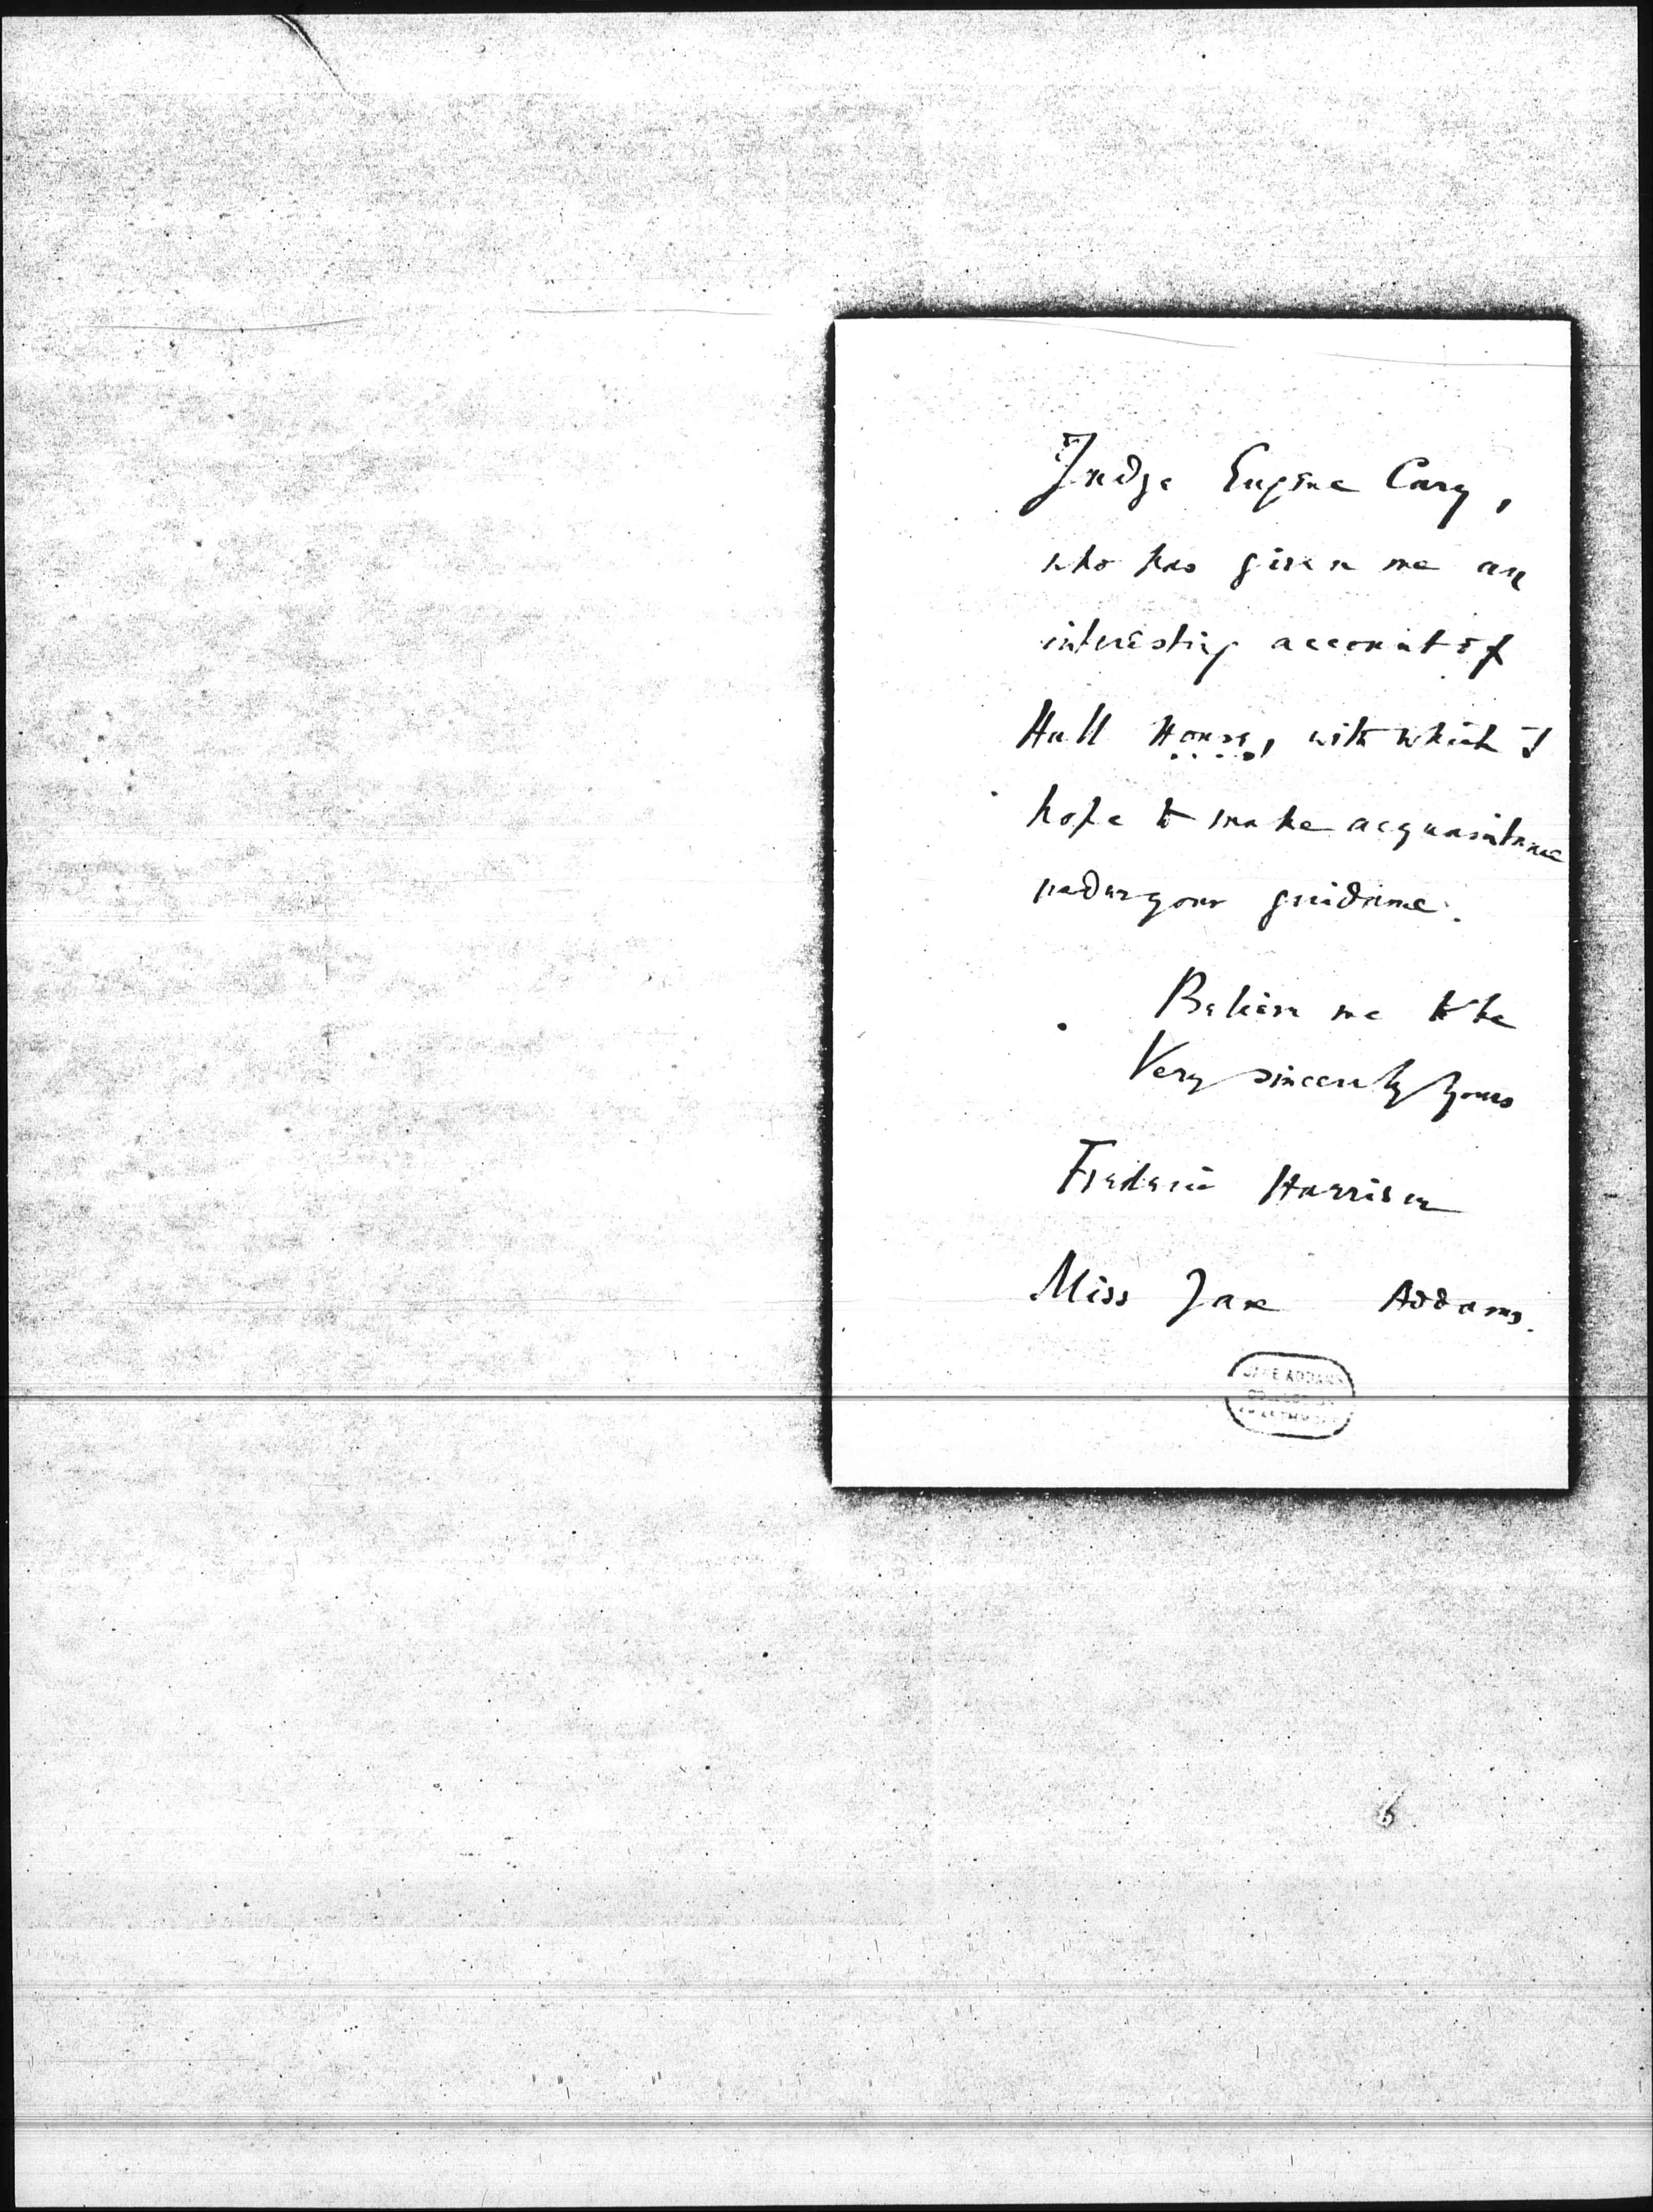 Judge Eugene Cary,
who has given me an
interesting account of
Hull House, with which I
hope to make acquaintance
under your guidance.
Believe me to be
Very sincerely yours
Frederic Harrison
Miss Jane Addams.
JANE ADDAMS
COLLECTION
SWARTHMORE
6